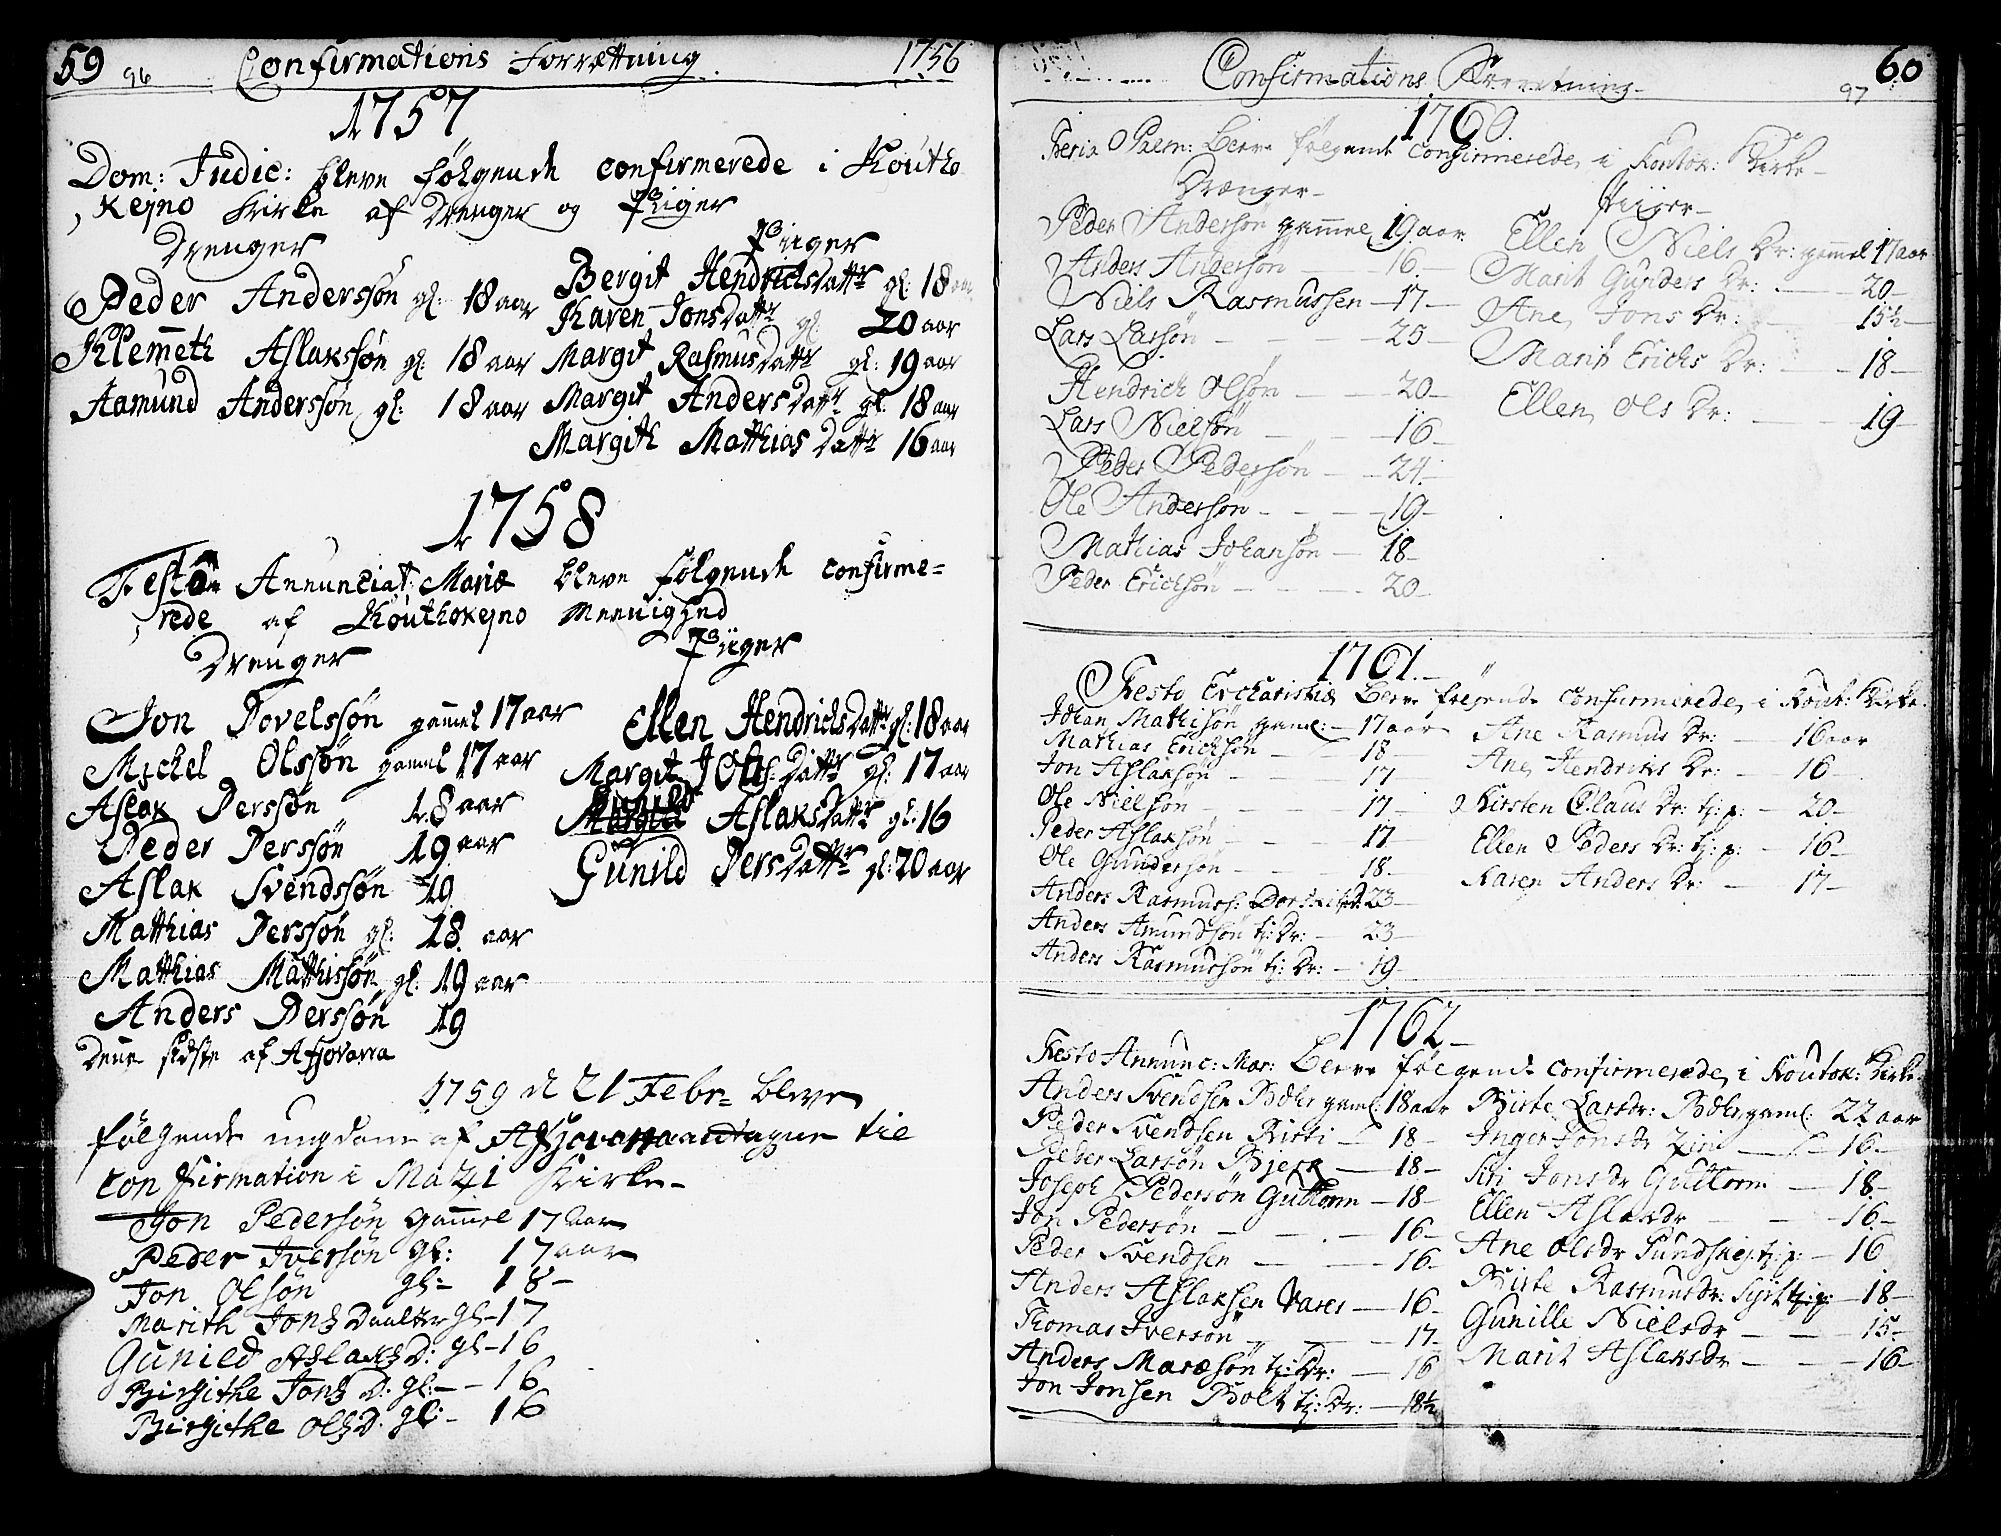 59 96 Confirmations Forrættning 1756
1757
Dom: Judic: bleve følgende confirmerede i Koutho
kejno Kirke af Drenger og Piger
Drenger
Peder Anderssøn gl: 18 aar
Klemeth Aslakssøn gl: 18 aar
Aamund Anderssøn gl: 18 aar
Piiger
Bergit Hendrichsdattr gl: 18 aar
Karen Jonsdattr gl: 20 aar
Margit Rasmusdattr gl: 19 aar
Margit Andersdattr gl: 18 aar
Margith Matthiasdattr 16 aar
1758
Festo Annunciat: Mariæ bleve følgende confirme=
rede af Kouthokejno Meenighed
Drenger
Jon Povelssøn gammel 17 aar
Michel Olssøn gamel 17 aar
Aslak Perssøn 18 aar
Peder Perssøn 19 aar
Aslak Svendssøn 19
Matthias Perssøn gl: 18 aar
Matthias Mathissøn gl: 19 aar
Anders Perssøn 19
Denne sidste af Afjovarra
Piiger
Ellen Hendrichsdattr gl: 18 aar
Margit Olsdattr gl: 17 aar
Aslaksdattr gl: 16
Gunild Persdattr gl: 20 aar
1759 d 21 Febr= bleve
følgende ungdom af Afjovarra antagne til
confirmation i Mazi Kirke-
Jon Pedersøn gammel 17 aar
Peder Iversøn gl: 17 aar
Jon Olsøn gl= 18-
Marith Jons Daatter gl-17
Gunild Aslaks D: gl-16
Birgithe Jons D: gl:- - 16
Birgithe Ols D: gl:- 16
Confirmations Forretning- 97 60
1760.
Feria Palm: bleve følgende confirmerede i Koutok: Kirke-
Drænger-
Peder Anderson gammel 19 aar.
Anders Anderson 16
Niels Rasmussen - 17-
Lars Larsøn - - - 25-
Hendrich Olsøn - - 20-
Lars Nielsøn - - - 16-
Peder Pedersøn - - 24-
Ole Andersøn - - - 19-
Mathias Johansøn - 18-
Peder Erichsøn - - - 20-
Piiger-
Ellen Niels Dr: gammel 17 aar
Marit Gunders Dr: - 20-
Ane Jons Dr: 15½-
Marit Erichs Dr: - - 18-
Ellen Ols Dr: - - 19-
1761.-
Festo Eucharistiæ bleve følgende confirmerede i Kout: Kirke.
Johan Mathisøn gaml:- 17 aar
Mathias Erichsøn - - 18
Jon Aslaksøn - - 17
Ole Nielsøn - - - 17-
Peder Aslaksøn - - - 17-
Ole Gundersøn - - 18-
Anders Rasmuss: 23-
Anders Amundsøn tj: Dr: - 23-
Anders Rasmussøn tj: Dr: - 19-
Ane Rasmus Dr: - 16 aar
Ane Hendriks Dr: - 16-
Kirsten Claus Dr: tj: p: - 20-
Ellen Peders Dr: tj: p: - 16-
Karen Anders Dr: - 17-
1762-
Festo Annunc: Mar: bleve følgende confirmerede i Koutok: Kirke
Anders Svendsen gaml: 18 aar
Peder Svendsen Kirsti - 18-
Peder Larsøn Bjerk - 18-
Joseph Pedersøn Guttorm - 18-
Jon Pedersøn - - - 16-
Peder Svendsen - - - 16-
Anders Aslaksen Vares - 16-
Thomas Iversøn - - - 17-
Anders tj: Dr: - 16
Jon Jonsen tj: Dr: - 18½
Birte Larsdr: gaml: 22 aar
Inger Jonsdr - 16-
Siri Jonsdr Guttorm - 18-
Ellen Aslaksdr - - 16-
Ane Olsdr tj: p: - 16
Birte Rasmusdr: tj: p: - 18-
Gunille Nielsdr - - - 15-
Marit Aslaksdr - - - 16-